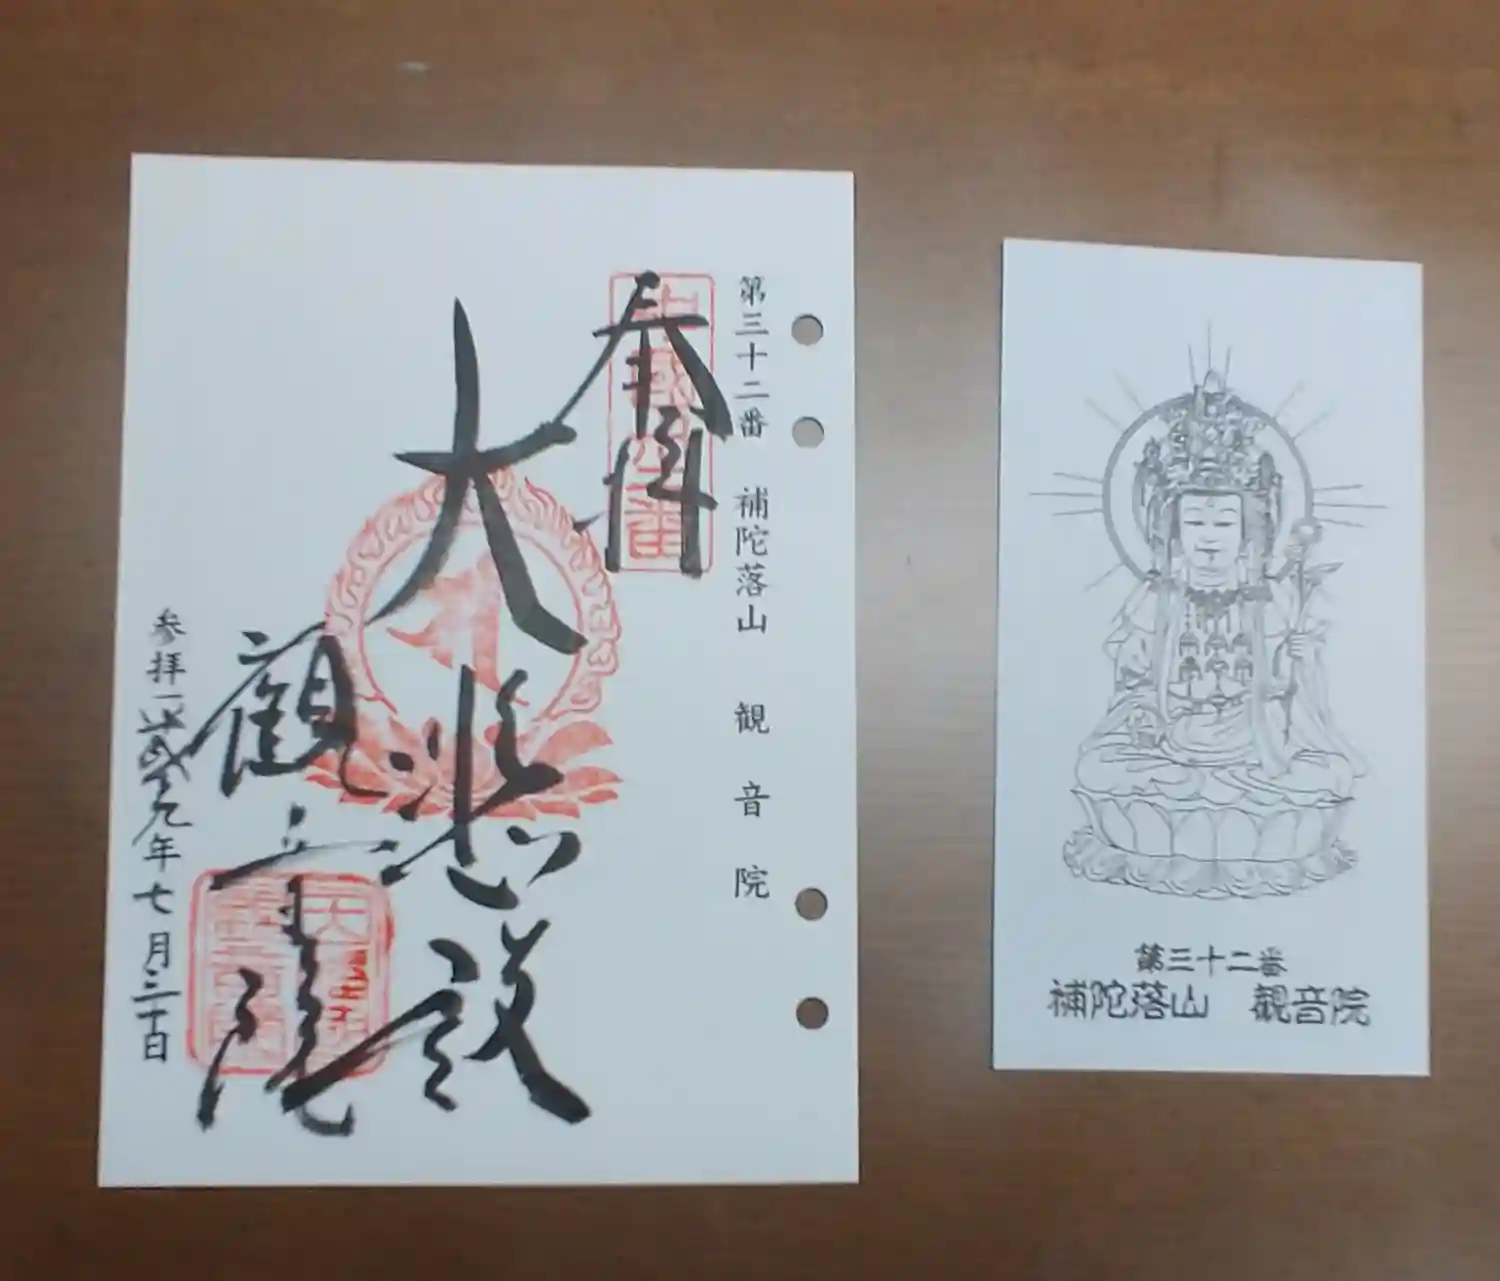 第三十二番 補陀落山 観音院
奉拝
大悲殿
観音院
参拝 平成二十九年七月三十日
第三十二番
補陀落山 観音院